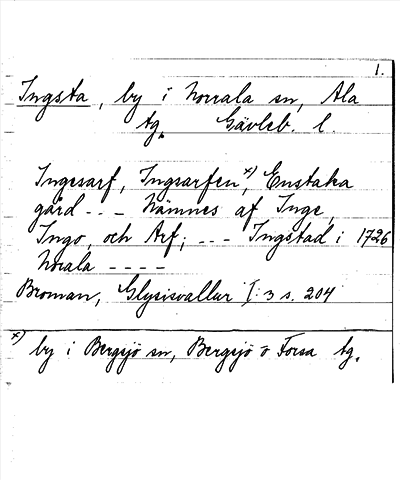 1.
Ingsta, by i Norrala sn, Ala
tg. Gävleb. l.
Ingesarf, Ingsarfen,x) Enstaka
gård - - - Nämnes af Inge,
Ingo, och Arf; - - - Ingstad i 1726
Norala - - - -
Broman, Glysisvallur I: 3 s. 204
x) by i Bergsjö sn, Bergsjö o Forsa tg.